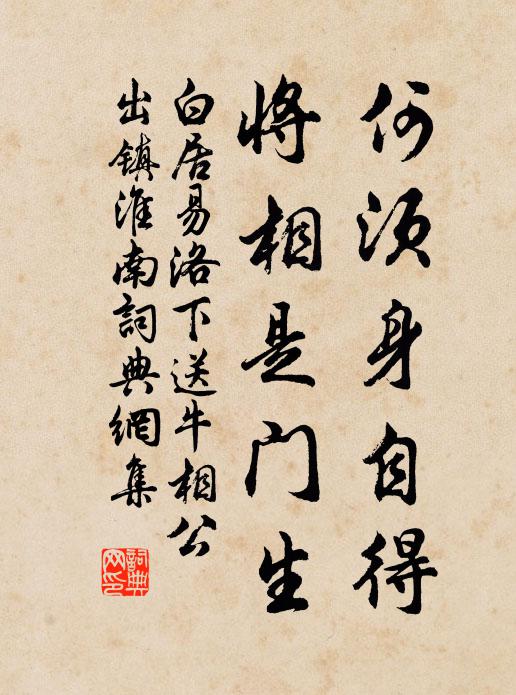 何须身自得
将相是门生
白居易洛下送牛相公
出镇淮南詞典網集
詞典
网印